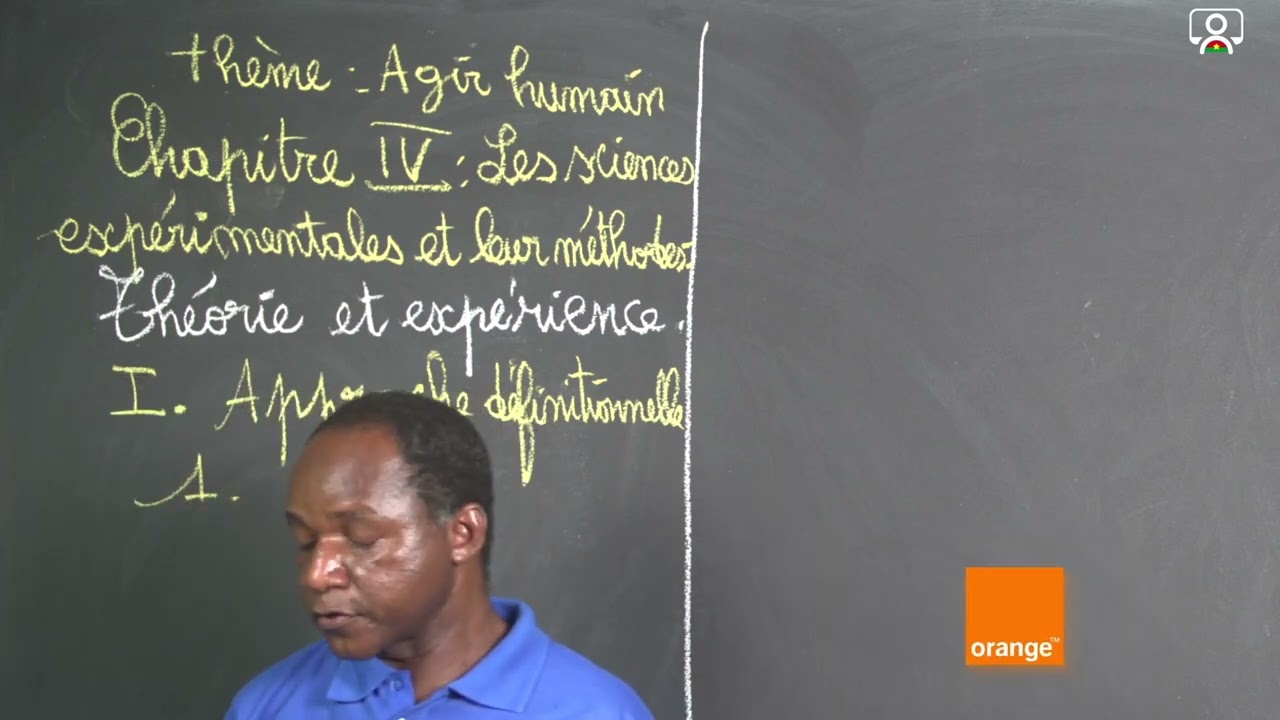 thème : Agir humain
Chapitre IV : Les sciences
expérimentales et leur méthodes.
Théorie et expérience.
I. Approche définitionnelle
1.
orange™